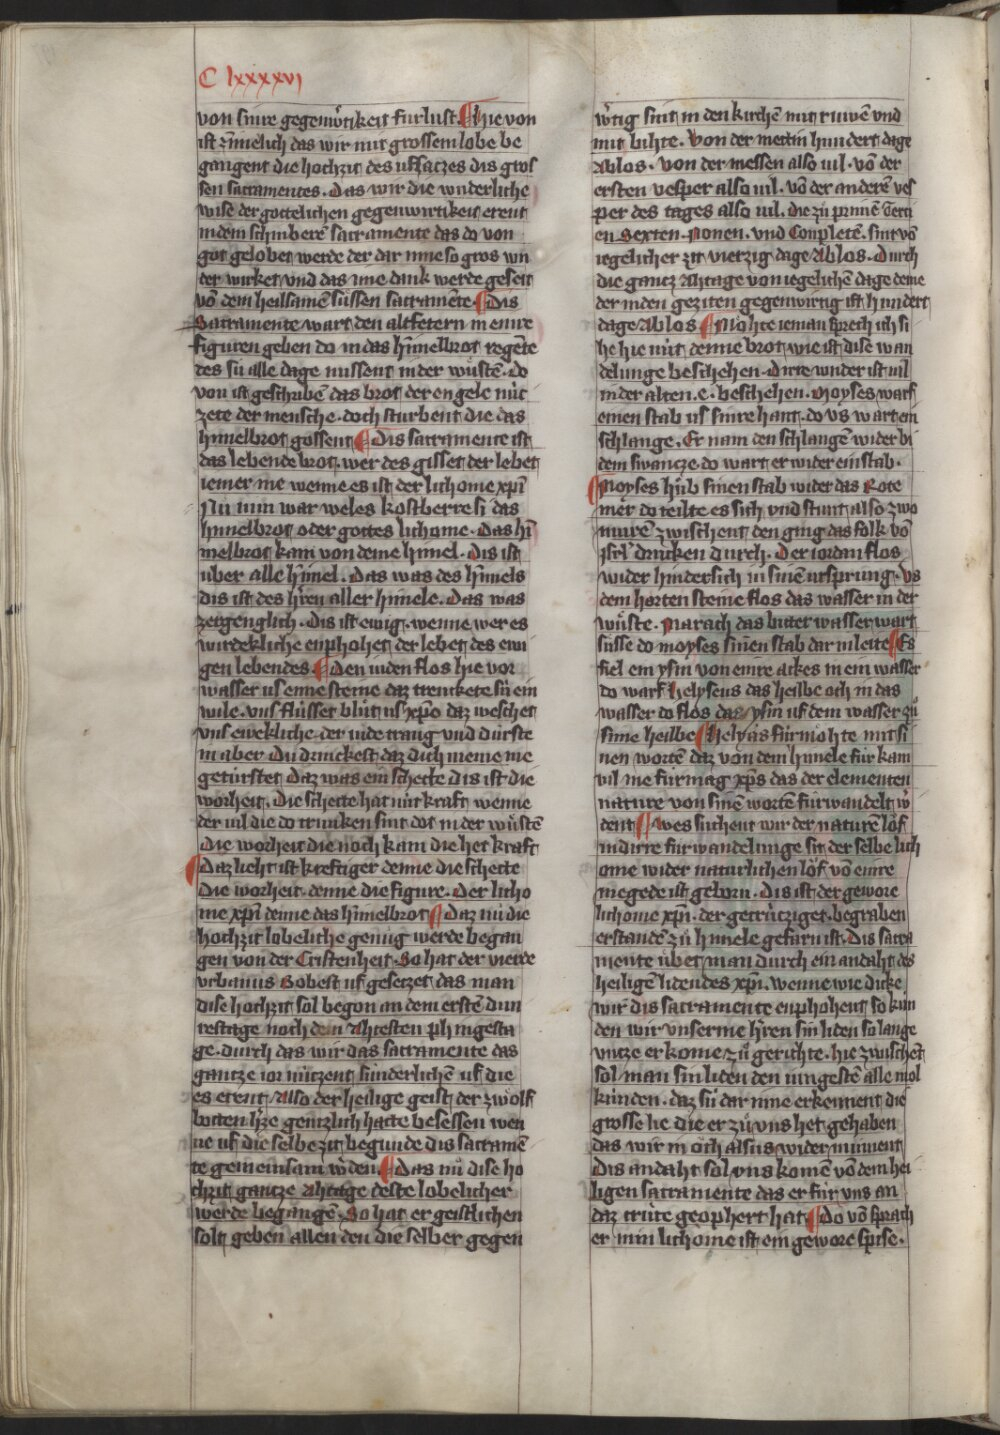 C lxxxxvj
von sinre gegenwo̍tikeit furlust. ¶ Hie von
ist zimelich das wir mit grossem lobe be
gangent die hochzit des ufsaczes dis gros
sen sacramentes. Das wir die wnderliche
wise der gottelichen gegenwirtikeit erent
in dem schinberē sacramente das do von
got gelobet werde der dar inne so gros wn
der wirket vnd das ime dank werde geseit
vō dem heilsamē sússen sacramēte. ¶ Dis
Sacramente wart den altfetern in einre
figuren geben do in das hīmelbrot regēte
des sú alle dage nussent in der wůstē. do
von ist geschribē das brot der engele nút
zete der mensche. doch sturbent die das
himelbrot gossent ¶ Dis sacramente ist
das lebende brot. wer des gisset der lebet
iemer me wenne es ist der lichome xp̄i
Nu nim war weles kostberre si das
himelbrot oder gottes lichome. Das hi
melbrot kam von deme himel. Dis ist
úber alle himel. Das was des himels
dis ist des hr̄en aller himele. Das was
zergenglich. Dis ist ewig. wenne wer es
wirdekliche enphohet der lebet des ewi
gen lebendes. ¶ Den iuden flos hie vor
wasser us eime steine daz trenckete sú ein
wile. vns flússet blůt us xp̄o daz weschet
vns ewekliche. der iude trang vnd durste
in aber du drinckest daz dich nieme me
getúrstet Daz was ein schette dis ist die
worheit. Die schette hat nút kraft wenne
der vil die do trunken sint dot in der wůstē
Die worheit die noch kam die het kraft
¶ Daz lieht ist kreftiger denne die schette
Die worheit denne die figure. Der licho
me xp̄i denne das himelbrot ¶ Daz nů die
hochzit lobeliche genůg werde began
gen von der Cristenheit. So hat der vierde
vrbanus Bobest uf gesetzet das man
dise hochzit sol begon an dem erstē dun
restage noch dem Ahtesten phingesta
ge. durch das wir das sacramente das
gantze ior nútzent súnderlichē uf die
es erent Also der heilige geist der zwolf
botten hr̄ze gentzlich hatte besessen wen
ne uf die selbe zit begunde dis sacramē
te gemeinsam wr̄den. ¶ Das nů dise ho
chzit gantze Ahtage deste lobelicher
werde begangē. So hat er geistlichen
solt geben allen den die selber gegen
wr̄tig sint in den kirchē mit ruwē vnd
mit bihte. Von der mettin hundert dage
Ablos. von der messen also vil. vō der
ersten vesper also vil. vō der anderē ves
per des tages also vil. die zů primē Terci
en Sexten. Nonen. vnd Conpletē. sint vō
iegelicher zit vierzig dage Ablos. Durch
die gantz Ahtage von iegelichē dage deme
der in den geziten gegenwirtig ist hundert
dage Ablos ¶ Mo̍hte ieman sprech ich si
he hie nút denne brot wie ist dise wan
delunge beschehen. Dirre wnder ist vil
in der alten. e. beschehen. Moyses warf
einen stab us sinre hant. do vs wart ein
schlange. Er nam den schlangē wider bi
dem swancze. do wart er wider ein stab.
¶ Moyses hůb sinen stab wider das Rote
mer do teilte es sich vnd stunt also zwo
murē zwischent den ging das folk vō
isrl̄ drucken durch. Der iordan flos
wider hindersich in sinē ursprung. vs
dem horten steine flos das wasser in der
wůste. Marach das bitter wasser wart
sússe do moyses sinen stab dar in leite ¶ Es
fiel ein ysin von einre ackes in ein wasser
do warf helyseus das heilbe och in das
wasser do flos daz ysin uf dem wasser zů
sime heilbe ¶ Helyas fúrmo̍hte mit si
nen wortē daz von dem himele fúr kam
vil me fúrmag xp̄s das der elementen
nature von sinē wortē fúrwandelt wr̄
dent ¶ Wes suchent wir der naturē lo̍f
in dirre fúrwandelunge sit der selbe lich
ome wider naturlichen lo̍f vō einre
megede ist geborn. Dis ist der gewore
lichome xp̄i. der getrúcziget. begraben
erstandē zů himele gefarn ist. Dis sacra
mente úbet man durch ein andaht des
heiligē lidendes xp̄i. wenne wie dicke
wir dis sacramente enphohent so kún
den wir vnserme hr̄en sin liden so lange
vntze er kome zů gerichte. hie zwischēt
sol man sin liden den iungestē alle mol
kúnden. daz sú dar inne erkennent die
grosse lie die er zů vns het gehaben
das wir in och alsus wider minnent
Dis andaht sol vns komē vō dem hei
ligen sacramente das er fúr vns an
daz crúte geophert hat ¶ Do vō sprach
er min lichome ist ein gewore spise.